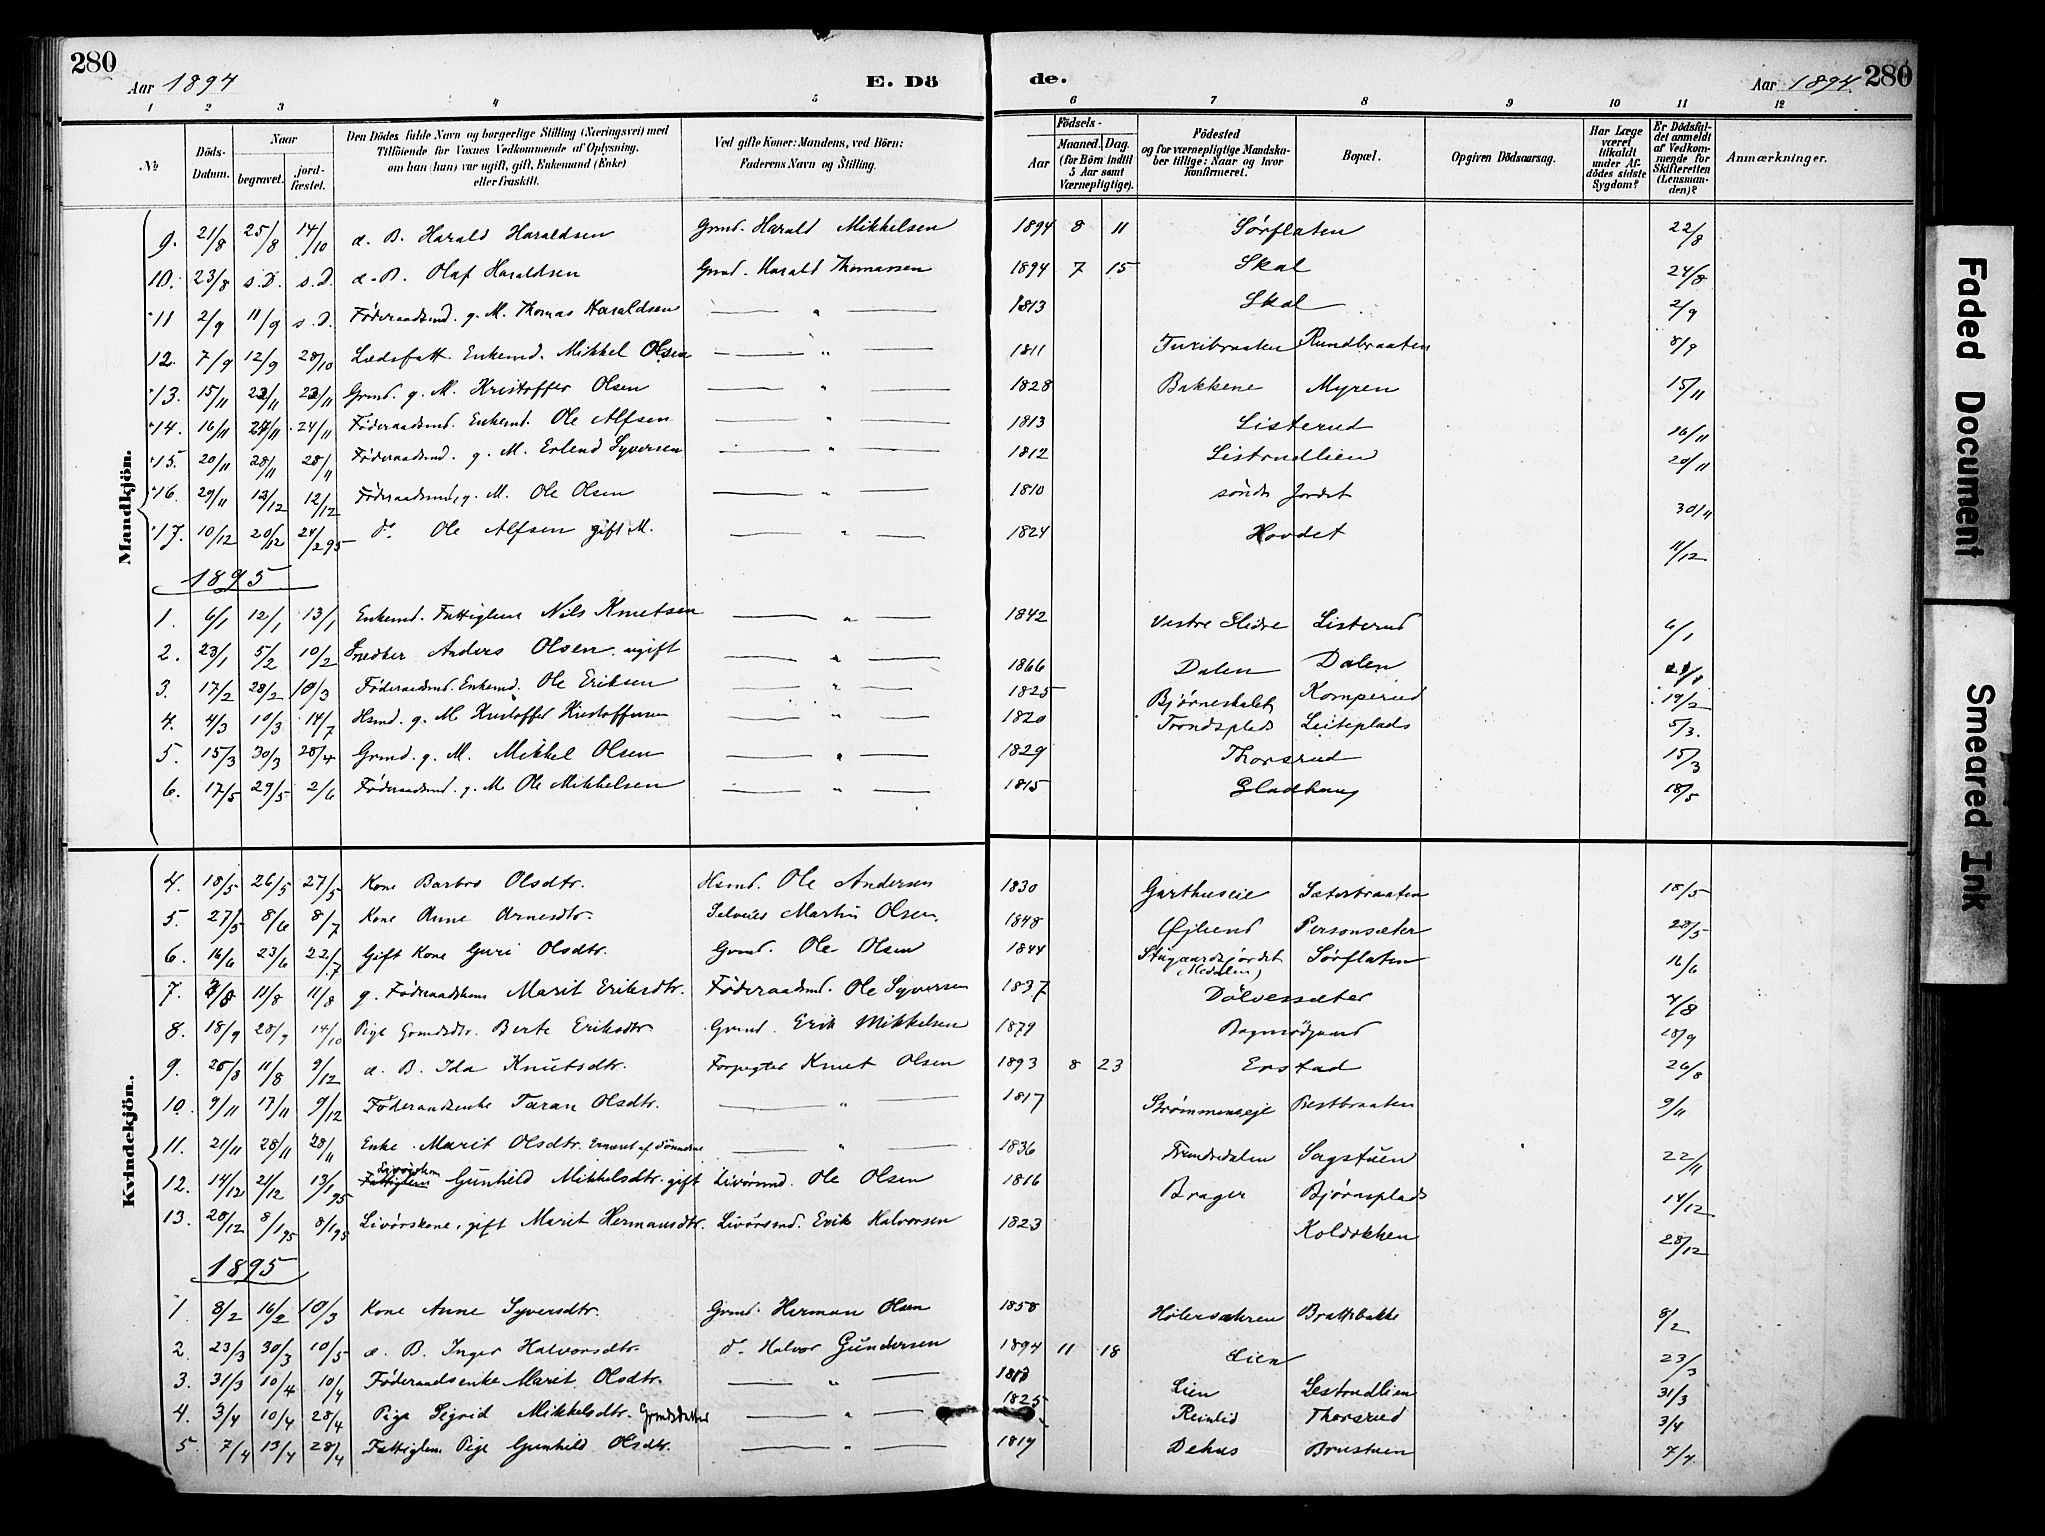 280
Aar 1894
E. Dö
de.
Aar 1894.
280
1 2 3 4 5 6 7 8 9 10 11 12
№
Döds-Datum.
Naar
begravet.
jord-fæstet.
Den Dödes fulde Navn og borgerlige Stilling (Næringsvei) med Tilföiende for Voxnes Vedkommende af Oplysning, om han (hun) var ugift, gift, Enkemand (Enke) eller fraskilt.
Ved gifte Koner: Mandens, ved Börn: Faderens Navn og Stilling.
Födsels-
Aar
Maaned. Dag.
(for Börn indtil 5 Aar samt Værnepligtige).
Födested og for værnepligtige Mandska-ber tillige: Naar og hvor konfirmeret.
Bopæl.
Opgiven Dödsaarsag.
Har Læge været tilkaldt under Af-dödes sidste Sygdom?
Er Dödsfal-det anmeldt af Vedkom-mende for Skifteretten (Lensman-den)?
Anmærkninger.
Mandkjön.
9. 21/8 25/8 14/10 æ. B. Harald Haraldsen Grmd. Harald Mikkelsen 1894 8 11 Sørflaten 22/8
10. 23/8 s.D. s.D. æ. B. Olaf Haraldsen Grmd. Harald Thomassen 1894 7 15 Skal 24/8
11 2/9 11/9 s.D. Føderaadsmd. g. M. Thomas Haraldsen — " — 1813 Skal 2/9
12. 7/9 12/9 28/10 Lædsfatt. Enkemd. Mikkel Olsen — " — 1811 Turibraaten Rundbraaten 8/9
13. 15/11 23/11 23/11 Grmd. g. M. Kristoffer Olsen — " — 1828 Bakkene Myren 15/11
14. 16/11 24/11 24/11 Føderaadsmd. Enkemd. Ole Alfsen — " — 1813 Listerud 16/11
15. 20/11 28/11 28/11 Føderaadsmd. g. M. Erlend Syversen — " — 1812 Listrudlien 20/11
16. 29/11 12/12 12/12 Føderaadsmd, g. M. Ole Olsen — " — 1810 søndr Jordet 30/11
17. 10/12 20/12 24/2 95 do Ole Alfsen gift M. — " — 1824 Hovdet 11/12
1895
1. 6/1 12/1 13/1 Enkemd. Fattiglem Nils Knutsen — " — 1842 Vestre Slidre Listerud 6/1
2. 23/1 5/2 10/2 Snedker Anders Olsen, ugift — " — 1866 Dalen Dalen
3. 17/2 28/2 10/3 Føderaadsmd. Enkemd. Ole Eriksen — " — 1825 Bjørneskalet Komperud 19/2
4. 4/3 10/3 14/7 Hsmd. g. M Kristoffer Kristoffersen — " — 1820 Trondsplads Leiteplads 5/3.
5. 15/3 30/3 28/4 Grmd. g. M. Mikkel Olsen — " — 1829 Thorsrud 15/3
6. 17/5 29/5 2/6 Føderaadsmd. g. M Ole Mikkelsen — " — 1815 Gladhaug 18/5
Kvindekjön.
4. 18/5 26/5 27/5 Kone Barbro Olsdtr. Hsmd. Ole Andersen 1830 Garthuseie Sæterbraaten 18/5
5. 27/5 8/6 8/7 Kone Anne Arnesdtr. Selveier Martin Olsen. 1848 Øjlund Personsæter 28/5
6. 16/6 23/6 22/7 Gift Kone Guri Olsdtr. Grmd. Ole Olsen 1844 Stugaardsjordet (Hedalen) Sørflaten 16/6
7. 3/8 11/8 11/8 g. Føderaadskone Marit Eriksdtr. Føderaadsmd. Ole Syversen 1837 Dølvessæter 4/8
8. 18/9 28/9 14/10 Pige Grmdsdtr. Berte Eriksdtr. Grmd. Erik Mikkelsen 1879 18/9
9. 25/8 11/8 9/12 æ. B. Ida Knutsdtr. Forpagter Knut Olsen 1893 8 23 Erstad 26/8
10. 9/11 17/11 9/12 Føderaadsenke Taran Olsdtr. — " — 1817 Strømmenseje Bestbraaten 9/11
11. 21/11 28/11 28/11 Enke. Marit Olsdtr. Ernæret af Sønnerne — " — 1836 Trondsdalen Sagstuen 22/11
12. 14/12 21/12 13/1 95 Fattiglem Livørskone Gunhild Mikkelsdtr. gift Livørsmd. Ole Olsen 1816 Brager Bjørnsplads 14/12
13. 28/12 8/1 95 8/1 95 Livørskone, gift Marit Hermansdtr. Livørsmd. Erik Halvorsen 1823 Koldokken 28/12
1895
1 8/2 16/2 10/3 Kone Anne Syversdtr. Grmd. Herman Olsen 1858 Hølersæteren Brattebakke 8/2
2. 23/3 30/3 10/5 æ. B. Inger Halvorsdtr. do Halvor Gundersen 1894 11 18 Lien 23/3
3. 31/3 10/4 10/4 Føderaadsenke Marit Olsdtr. — " — Lien Lestrudlien 31/3
4. 3/4 10/4 28/4 Pige Sigrid Mikkelsdtr. Grmdsdatter — " — 1825 Reinlid Thorsrud 3/4
5. 7/4 13/4 28/4 Fattiglem Pige Gunhild Olsdtr. — " — 1819 Dehus Brustuen 7/4
Faded Document
Smeared Ink